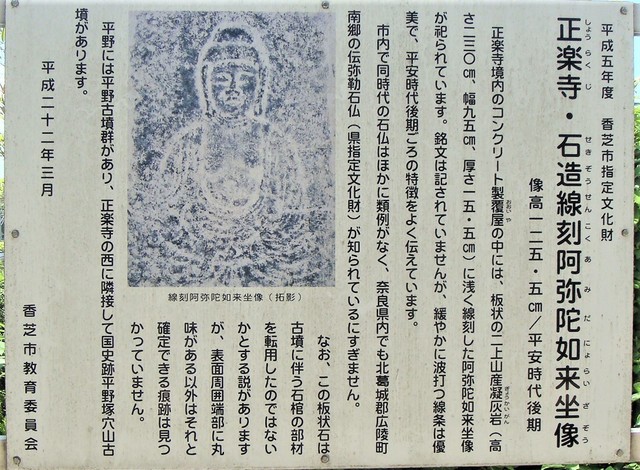 平成五年度　香芝市指定文化財
正楽寺・石造線刻阿弥陀如来坐像
しょうらくじ　せきぞうせんこくあみだにょらいざぞう
像高一二五・五㎝／平安時代後期
正楽寺境内のコンクリート製覆屋の中には、板状の二上山産凝灰岩（高
おおいや　ぎょうかいがん
さ二三〇㎝、幅九五㎝、厚さ一五・五㎝）に浅く線刻した阿弥陀如来坐像
が祀られています。銘文は記されていませんが、緩やかに波打つ線条は優
美で、平安時代後期ごろの特徴をよく伝えています。
市内で同時代の石仏はほかに類例がなく、奈良県内でも北葛城郡広陵町
南郷の伝弥勒石仏（県指定文化財）が知られているにすぎません。
線刻阿弥陀如来坐像（拓影）
なお、この板状石は
古墳に伴う石棺の部材
を転用したのではない
かとする説があります
が、表面周囲端部に丸
味がある以外はそれと
確定できる痕跡は見つ
かっていません。
平野には平野古墳群があり、正楽寺の西に隣接して国史跡平野塚穴山古
墳があります。
平成二十二年三月
香芝市教育委員会